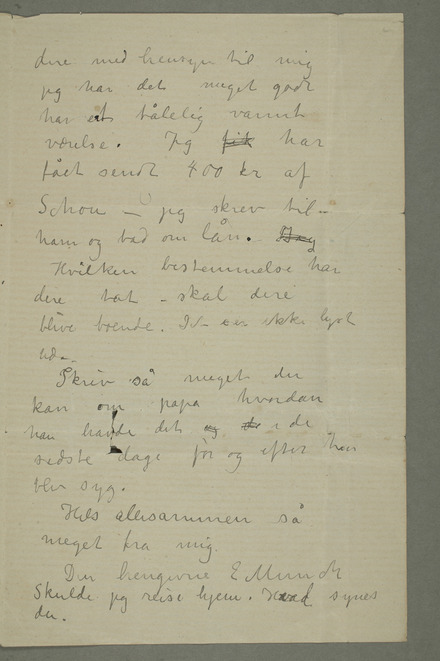 dere med hensyn til mig
jeg har det meget godt
har et tålelig varmt
værelse. Jeg fik har
fået sendt 400 kr af
Schou – jeg skrev til
ham og bad om lån. Jeg
Hvilken bestemmelse har
dere tat – skal dere
blive boende. Det ser ikke lyst
ud –
Skriv så meget du
kan om papa hvordan
han havde det og de i de
sidste dage før og efter han
blev syg.
Hils allesammen så
meget fra mig.
Din hengivne E Munch
Skulde jeg reise hjem. Hvad synes
du.